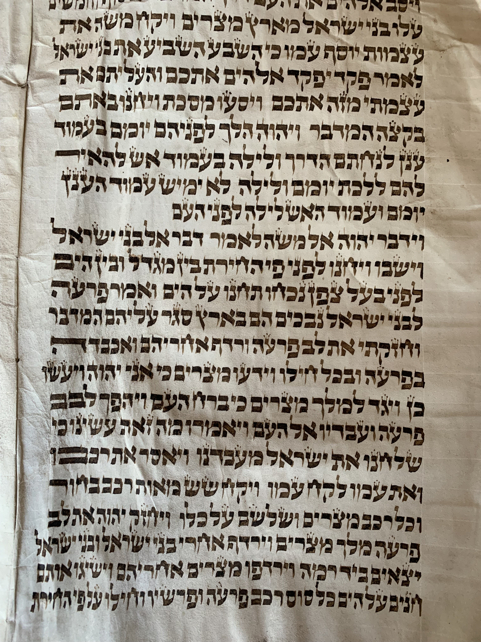 ויסב אלהים את העם
עלו בני ישראל מארץ מצרים ויקח משה את
עצמות יוסף עמו כי השבע השביע את בני ישראל
לאמר פקד יפקד אלהים אתכם והעליתם את
עצמתי מזה אתכם ויסעו מסכת ויחנו באתם
בקצה המדבר ויהוה הלך לפניהם יומם בעמוד
ענן לנחתם הדרך ולילה בעמוד אש להאיר
להם ללכת יומם ולילה לא ימיש עמוד הענן
יומם ועמוד האש לילה לפני העם
וידבר יהוה אל משה לאמר דבר אל בני ישראל
וישבו ויחנו לפני פי החירת בין מגדל ובין הים
לפני בעל צפן נכחו תחנו על הים ואמר פרעה
לבני ישראל נבכים הם בארץ סגר עליהם המדבר
וחזקתי את לב פרעה ורדף אחריהם ואכבדה
בפרעה ובכל חילו וידעו מצרים כי אני יהוה ויעשו
כן ויגד למלך מצרים כי ברח העם ויהפך לבב
פרעה ועבדיו אל העם ויאמרו מה זאת עשינו כי
שלחנו את ישראל מעבדנו ויאסר את רכבו
ואת עמו לקח עמו ויקח שש מאות רכב בחור
וכל רכב מצרים ושלשם על כלו ויחזק יהוה את לב
פרעה מלך מצרים וירדף אחרי בני ישראל ובני ישראל
יצאים ביד רמה וירדפו מצרים אחריהם וישיגו אותם
חנים על הים כל סוס רכב פרעה ופרשיו וחילו על פי החירת